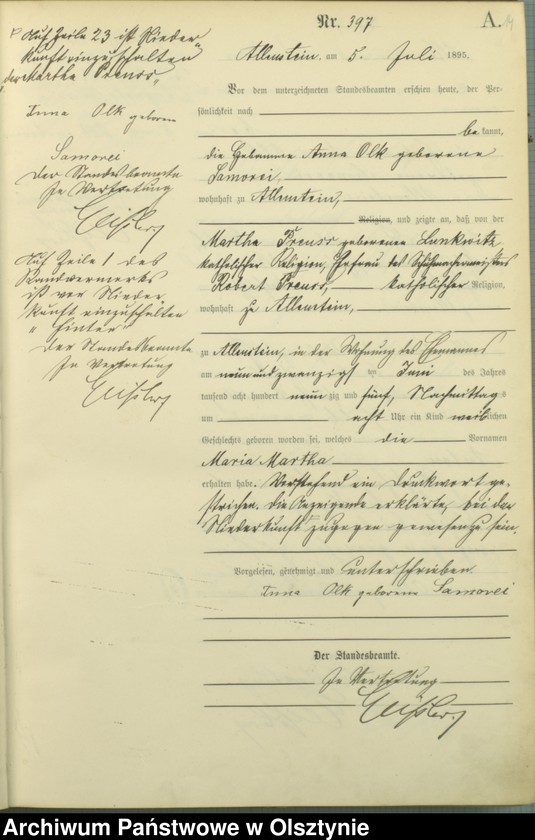 Nr. 397
A.
Allenstein, am 5. Juli 1895.
Vor dem unterzeichneten Standesbeamten erschien heute, der Per-
sönlichkeit nach
bekannt,
die Hebamme Anna Olk geborene
Samorei,
wohnhaft zu Allenstein,
Religion, und zeigte an, daß von der
Martha Preuss geborenen Lankwitz
katholischer Religion, Ehefrau des Schuhmachermeisters
Robert Preuss, katholischer Religion,
wohnhaft zu Allenstein,
zu Allenstein, in der Wohnung des Ehemannes
am neun und zwanzigsten Juni des Jahres
tausend acht hundert neunzig und fünf, Nachmittags
um acht Uhr ein Kind weiblichen
Geschlechts geboren worden sei, welches die Vornamen
Maria Martha
erhalten habe. Vorstehend ein Druckwort ge-
strichen. Die Anzeigende erklärte, bei der
Niederkunft zugegen gewesen zu sein.
Vorgelesen, genehmigt und unterschrieben
Anna Olk geborene Samorei
Der Standesbeamte.
In Vertretung
Auf Zeile 23 ist Nieder
kunft einzuschalten
"der Martha Preuss"
Anna Olk geborene
Samorei
Der Standesbeamte
In Vertretung
Auf Zeile 1 des
Randvermerks
ist vor Nieder
kunft einzuschalten
"hinter"
Der Standesbeamte
In Vertretung
Archiwum Państwowe w Olsztynie